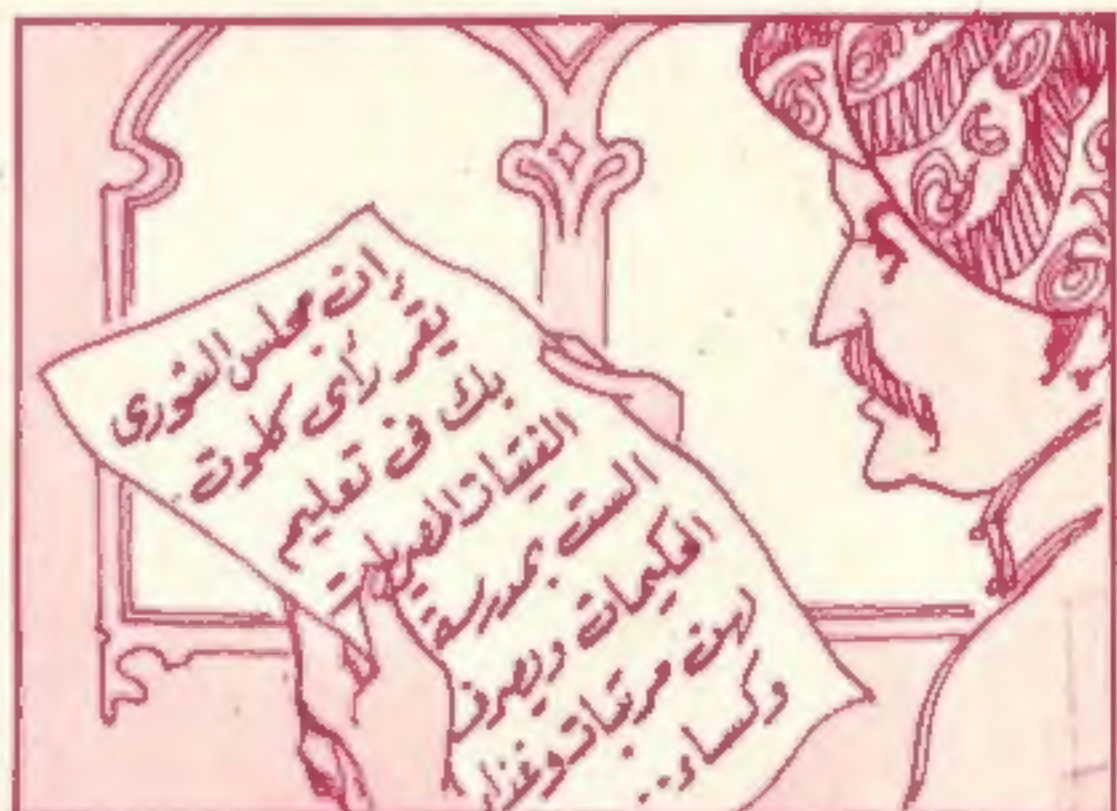 إن مجلس الشورى
يقر رأى كلوت
بك فى تعليم
الفتيات المصريات
الست بمدرسة
الحكيمات ويصرف
لهن مرتبات وغذاء
وكساء..